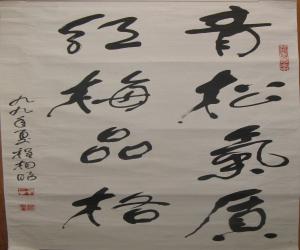 青松氣质
红梅品格
九九年夏